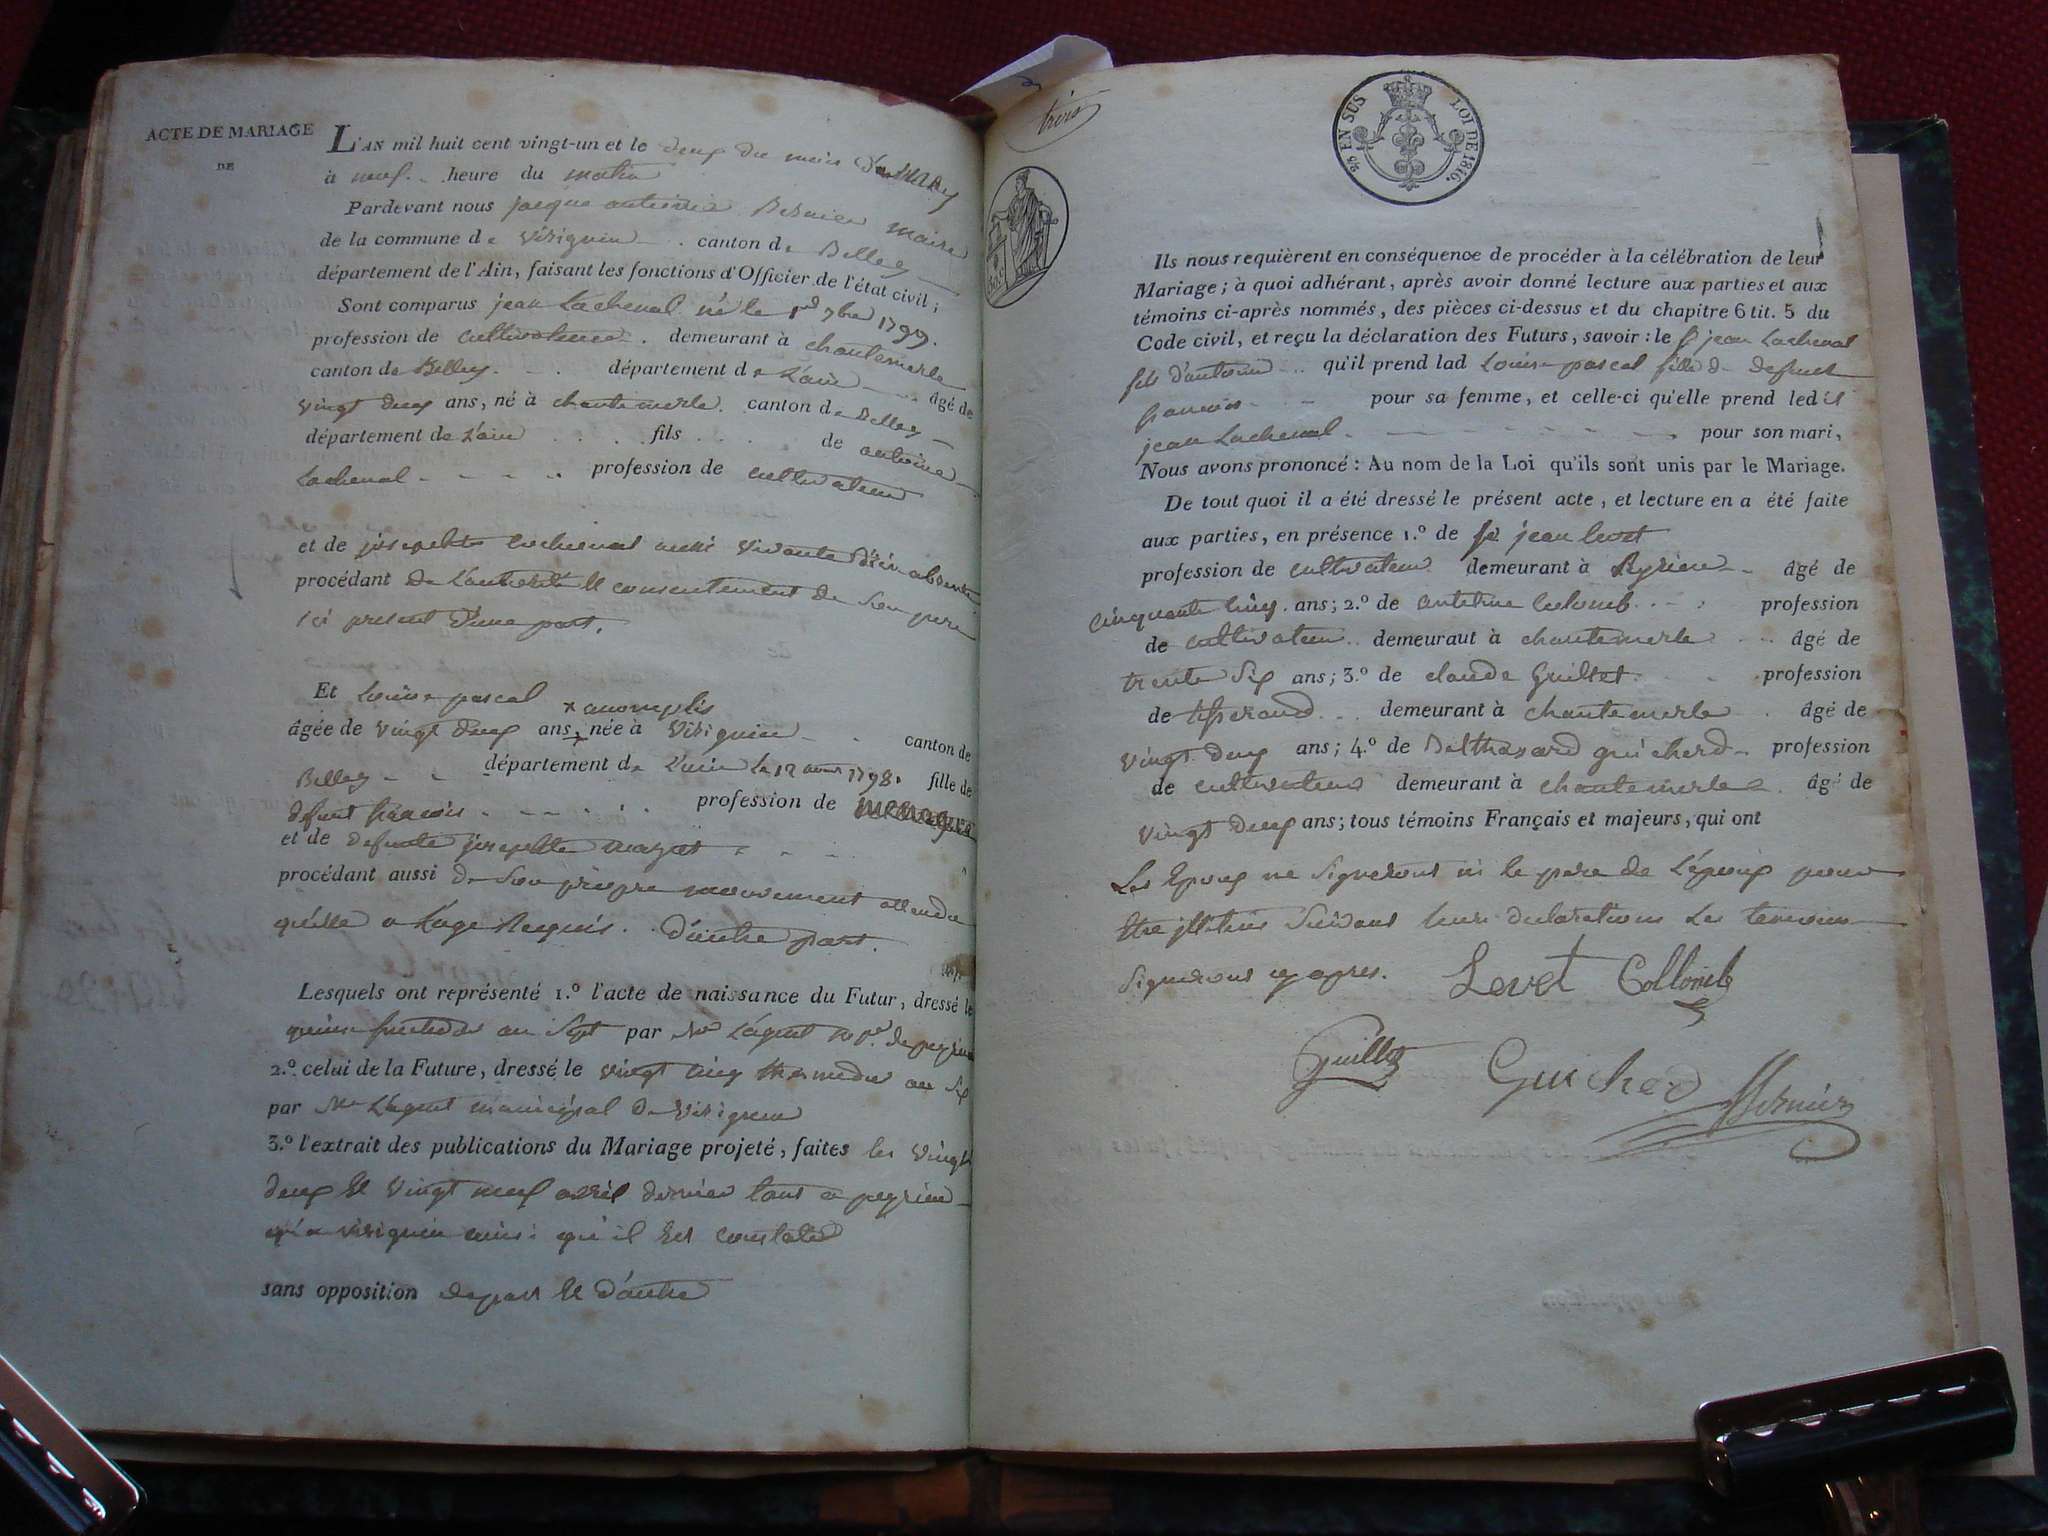 ACTE DE MARIAGE
DE
L'AN mil huit cent vingt-un et le deux du mois
à neuf heure du matin
Pardevant nous jacque Bernier maire
de la commune de virignin canton de Belley
département de l'Ain, faisant les fonctions d'Officier de l'état civil ;
Sont comparus jean Lacheval né le 1er 7bre 1799.
profession de cultivateur demeurant à chantemerle
canton de Belley département de L'ain âgé de
vingt deux ans, né à chantemerle canton de Belley
département de L'ain fils de antoine
Lacheval profession de cultivateur
et de josephte Lacheval vivante absente
procédant de L'autorité et consentement de son pere
ici present d'une part.
Et Louise pascal
x accomplis
âgée de vingt deux ans, x née à Virignin canton de
Belley département de L'ain le 12 1798. fille de
defunt francois profession de
et de defunte josephte
procédant aussi de Son propre mouvement attendu
qu'elle a L'age Requis. D'autre part.
Lesquels ont représenté 1.º l'acte de naissance du Futur, dressé le
fructidor an Sept par Mr L'agent de peyrieu
2.º celui de la Future, dressé le vingt cinq thermidor an Six
par Mr L'agent municipal de virignin
3.º l'extrait des publications du Mariage projeté, faites les vingt
deux et vingt neuf avril dernier tant a peyrieu
qu'a virignin ainsi qu'il Est constaté
sans opposition de part et d'autre
trois
25 EN SUS LOI DE 1816.
Ils nous requièrent en conséquence de procéder à la célébration de leur
Mariage ; à quoi adhérant, après avoir donné lecture aux parties et aux
témoins ci-après nommés, des pièces ci-dessus et du chapitre 6 tit. 5 du
Code civil, et reçu la déclaration des Futurs, savoir : le Sr jean Lacheval
fils d'antoine qu'il prend lad Louise pascal fille de defunt
francois pour sa femme, et celle-ci qu'elle prend ledit
jean Lacheval pour son mari,
Nous avons prononcé : Au nom de la Loi qu'ils sont unis par le Mariage.
De tout quoi il a été dressé le présent acte, et lecture en a été faite
aux parties, en présence 1.º de Sr jean levet
profession de cultivateur demeurant à Peyrieu âgé de
cinquante cinq ans ; 2.º de antoine Colomb profession
de cultivateur demeuraut à chantemerle âgé de
trente Six ans ; 3.º de claude Guillet profession
de tisserand demeurant à chantemerle âgé de
vingt deux ans ; 4.º de Balthazard guicherd profession
de cultivateur demeurant à chantemerle âgé de
vingt deux ans ; tous témoins Français et majeurs, qui ont
Les Epoux ne Signeront ni le pere de L'époux pour
Etre illitrés Suivant leurs declarations Les temoins
Signeront cy apres. Levet Collomb
Guillet Guicherd Bernier